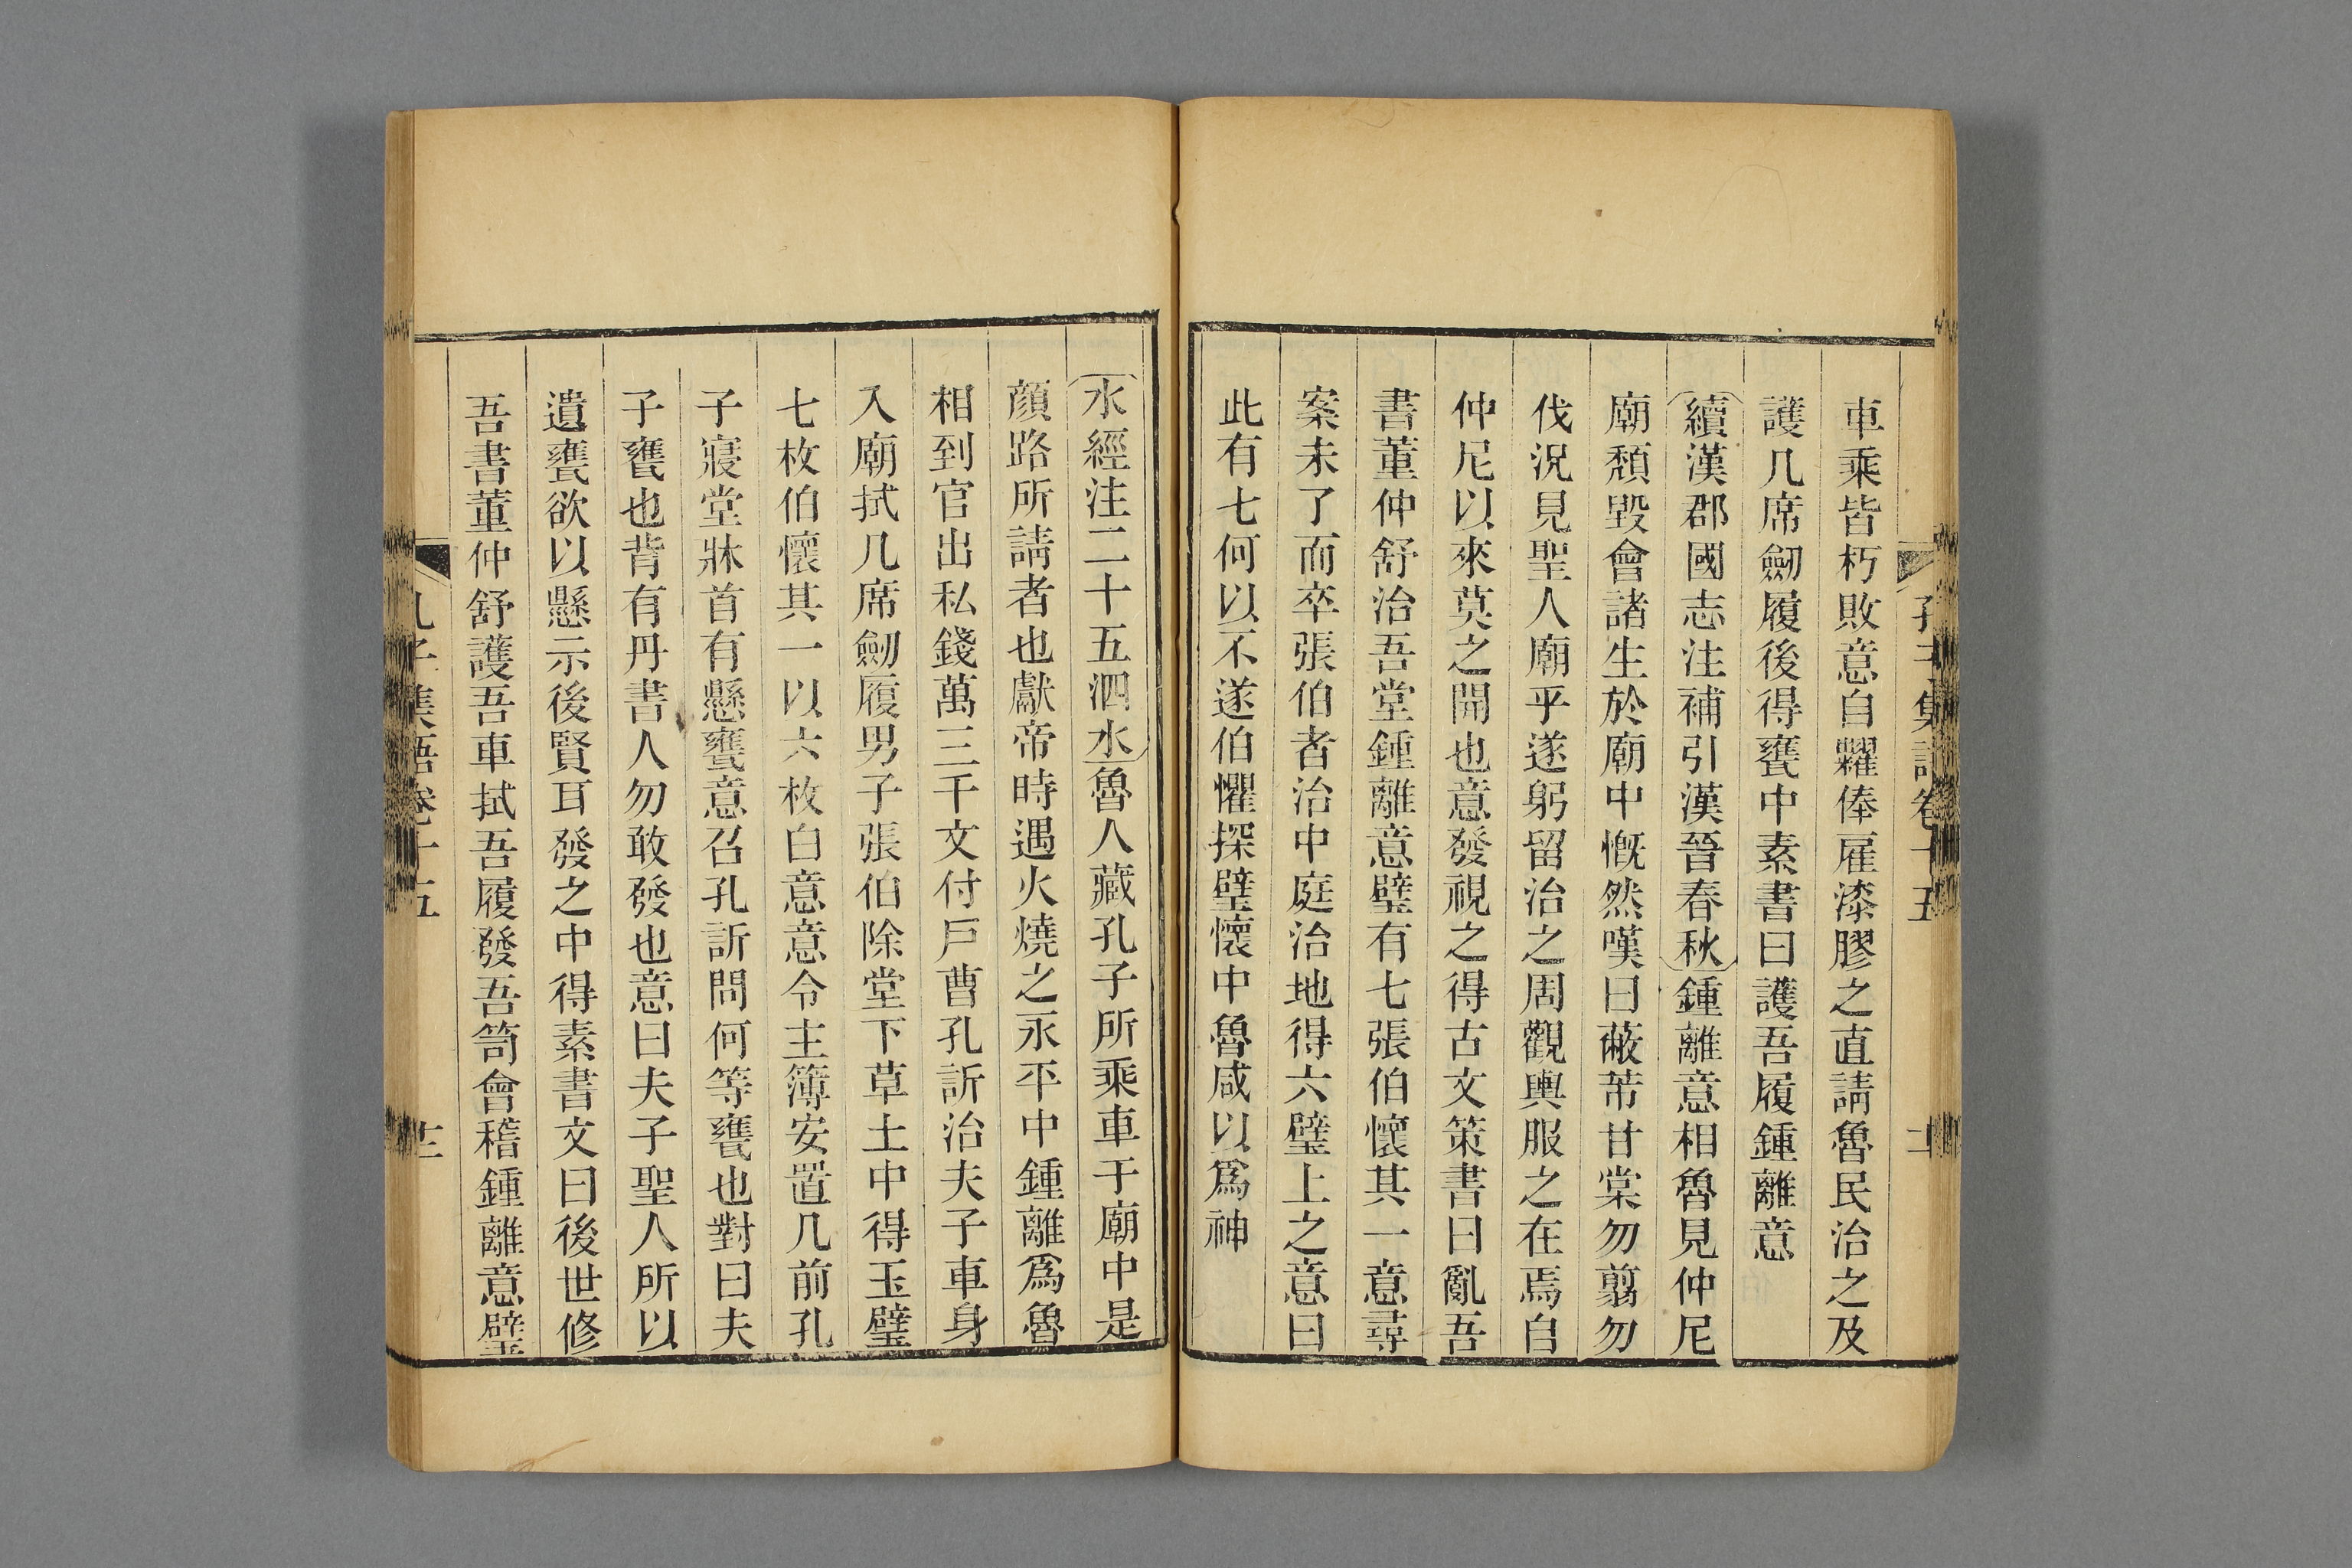 車乘皆朽敗意自糶俸雇漆膠之直請魯民治之及
護几席劒履後得甕中素書曰護吾履鍾離意
續漢郡國志注補引漢晉春秋鍾離意相魯見仲尼
廟頹毀會諸生於廟中慨然嘆曰蔽芾甘棠勿翦勿
伐況見聖人廟乎遂躬留治之周觀輿服之在焉自
仲尼以來莫之開也意發視之得古文策書曰亂吾
書董仲舒治吾堂鍾離意璧有七張伯懷其一意尋
案未了而卒張伯者治中庭治地得六璧上之意曰
此有七何以不遂伯懼探璧懷中魯咸以爲神
水經注二十五泗水魯人藏孔子所乘車于廟中是
顏路所請者也獻帝時遇火燒之永平中鍾離爲魯
相到官出私錢萬三千文付戶曹孔訢治夫子車身
入廟拭几席劒履男子張伯除堂下草土中得玉璧
七枚伯懷其一以六枚白意意令主簿安置几前孔
子寢堂牀首有懸甕意召孔訢問何等甕也對曰夫
子甕也背有丹書人勿敢發也意曰夫子聖人所以
遺甕欲以懸示後賢耳發之中得素書文曰後世修
吾書董仲舒護吾車拭吾履發吾笥會稽鍾離意璧
孔子集語卷十五